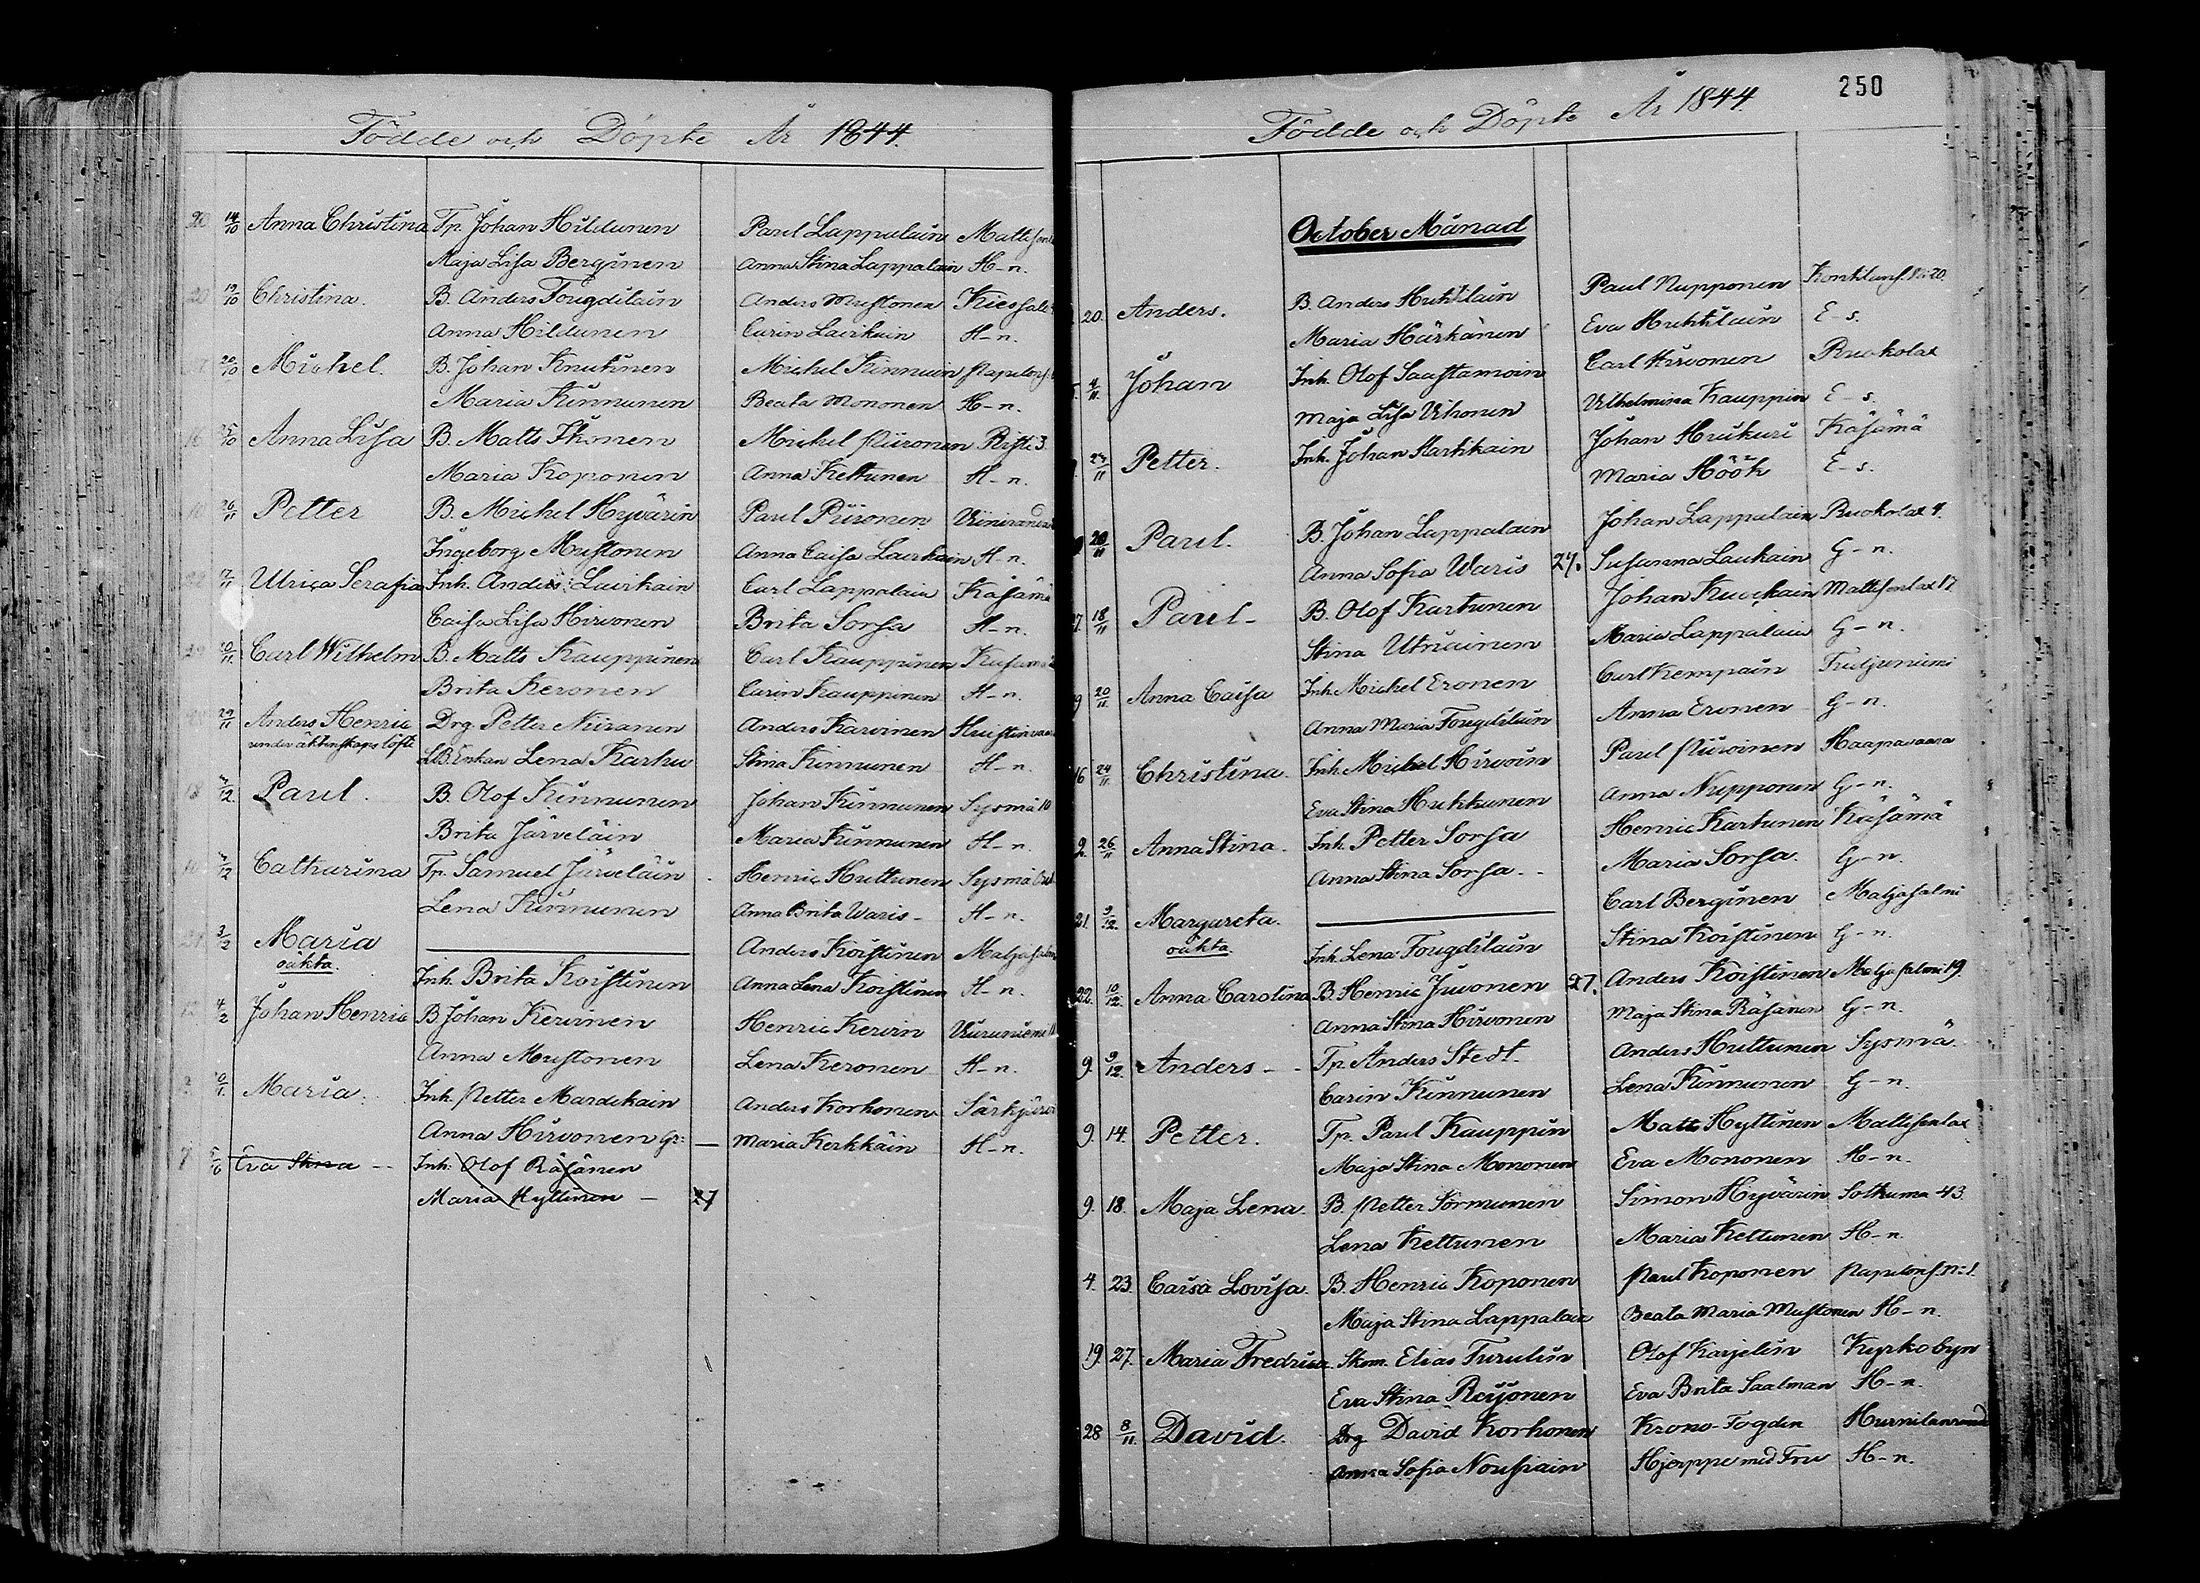 Födde och Döpte År 1844.
14/10 Anna Christina Tp. Johan Hildunen Paul Lappalain
Maja Lisa Berginen Anna Stina Lappalain H-n.
19/10 Christina. B. Anders Fougdilain Anders Mustonen
Anna Hildunen Carin Lairikain H-n.
20/10 Michel. B. Johan Knutinen Michel Kinnuin
Maria Kinnunen Beata Mononen H-n.
Anna Lisa B. Matts Ikonen Michel Piironen Risti 3.
Maria Koponen Anna Kettunen H-n.
26/11 Petter B. Michel Hyvärin Paul Piironen
Ingeborg Mustonen Anna Caisa H-n.
17/11 Ulrica Serafia Inh. Anders Lairikain Carl Lappalain Käsämä
Caisa Lisa Hirvonen Brita Sorsa H-n.
10/11 Carl Wilhelm B. Matts Kauppinen Carl Kauppinen
Brita Keronen Carin Kauppinen H-n.
29/11 Anders Henric Drg. Petter Niiranen Anders Karvinen
under äktenskaps löfte Enkan Lena Karhu Stina Kinnunen H-n.
Paul. B. Olof Kinnunen Johan Kinnunen Sysmä 10
Brita Järveläin Maria Kinnunen H-n.
Catharina Tp. Samuel Järveläin Henric Huttunen Sysmä
Lena Kinnunen Anna Brita Waris H-n.
Maria Anders Koistinen
oäkta. Inh. Brita Koistinen Anna Lena Koistinen H-n.
Johan Henric B. Johan Kervinen Henric Kervin
Anna Mustonen Lena Keronen H-n.
Maria. Inh. Petter Mardikain Anders Korhonen
Anna Hirvonen Gr: — Maria Kerkkäin H-n.
Eva Stina -- Inh. Olof Räsänen
Maria Hyttinen — 27
Födde och Döpte År 1844. 250
October Månad
20. Anders. B. Anders Huhtilain Paul Nupponen
Maria Härkänen Eva Huhtilain E-s.
4/11 Johan Inh. Olof Saastamoin Carl Hirvonen Ruokolax
Maja Lisa Vihonen Vilhelmina Kauppin E-s.
Petter. Inh. Johan Martikain Johan Käsämä
Maria Höök E-s.
20/11 Paul. B. Johan Lappalain Johan Lappalain Ruokolax 4.
Anna Sofia Waris 27. Susanna Laukain G-n.
18/11 Paul - B. Olof Kartunen Johan 17
Stina Utriainen Maria Lappalain G-n.
20/11 Anna Caisa Inh. Michel Eronen Carl Kempain
Anna Maria Fougdilain Anna Eronen G-n.
16 24/11 Christina. Inh. Michel Hirvoin Paul Piiroinen Haapavaara
Eva Stina Hukkunen Anna Nupponen G-n.
2. 26/11 Anna Stina. Inh. Petter Sorsa Henric Kartunen Käsämä
Anna Stina Sorsa. Maria Sorsa. G-n.
21. 9/12 Margareta. Carl Berginen Maljasalmi
oäkta. Inh. Lena Fougdilain Stina Koistinen G-n.
22. 10/12. Anna Carolina B. Henric Juvonen 27. Anders Koistinen Maljasalmi 19.
Anna Stina Hirvonen Maja Stina Räsänen G-n.
9. 9/12. Anders - - Tp. Anders Stedt Anders Huttunen Sysmä.
Carin Kinnunen Lena Kinnunen G-n.
9. 14. Petter. Tp. Paul Kauppin Matts Hyttinen
Maja Stina Mononen Eva Mononen H-n.
9. 18. Maja Lena. B. Petter Sormunen Simon Hyvärin Sotkuma 43.
Lena Kettunen Maria Kettunen H-n.
4. 23. Caisa Lovisa. B. Henric Koponen Paul Koponen
Maja Stina Lappalain Beata Maria Mustonen H-n.
19. 27. Maria Fredrica Skom. Elias Turulin Olof Karjelin Kyrkobyn
Eva Stina Reijonen Eva Brita Saalman H-n.
28 8/11. David. Drg David Korhonen Krono-Fogden
Anna Sofia Nousiain Hjerppe med Fru H-n.